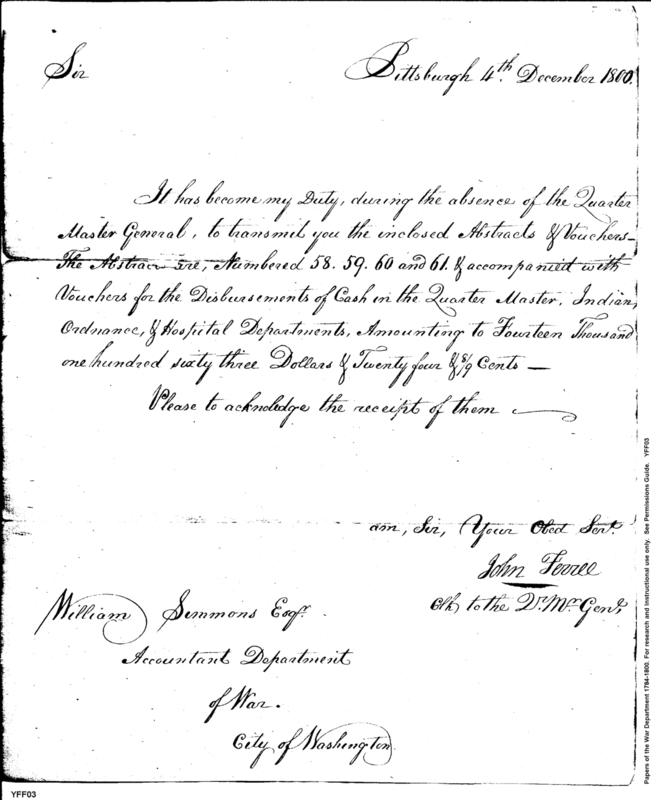 Sir Pittsburgh 4th. December 1800.
It has become my Duty, during the absence of the Quarter
Master General, to transmit you the inclosed Abstracts & Vouchers—
The Abstrac are, Numbered 58. 59. 60 and 61. & accompanied with
Vouchers for the Disbursements of Cash in the Quarter Master, Indian,
Ordnance, & Hospital Departments, Amounting to Fourteen Thousand
one hundred sixty three Dollars & Twenty four & 8/9 Cents —
Please to acknoledge the receipt of them —
am, Sir, Your Obed Servt.
John Ferree
Clk to the Qr. Mr. Genl.
William Simmons Esqr.
Accountant Department
of War.
City of Washington
YFF03
Papers of the War Department 1784-1800. For research and instructional use only. See Permissions Guide. YFF03